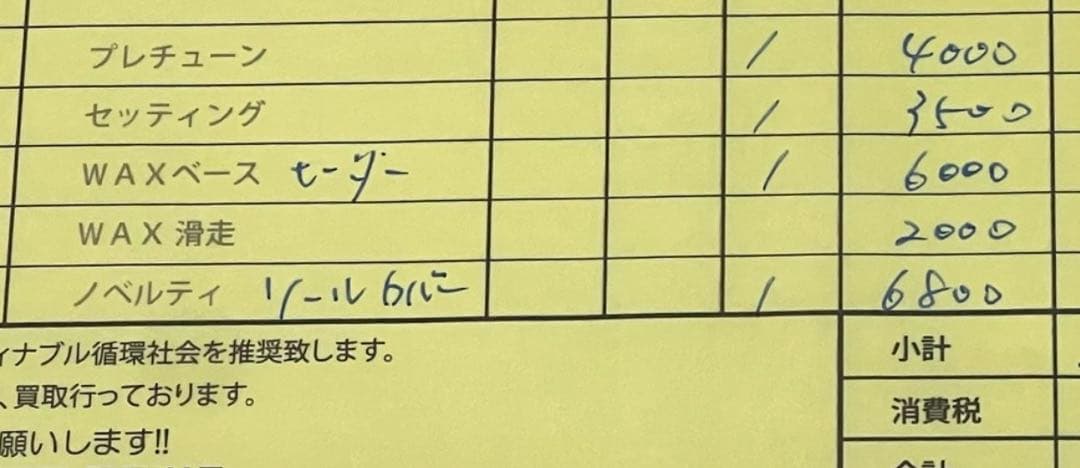 プレチューン / 4000
セッティング / 3500
WAXベース / 6000
WAX 滑走 2000
ノベルティ ソールカバー / 6800
ィナブル循環社会を推奨致します。
小計
、買取行っております。
消費税
願いします!!
合計